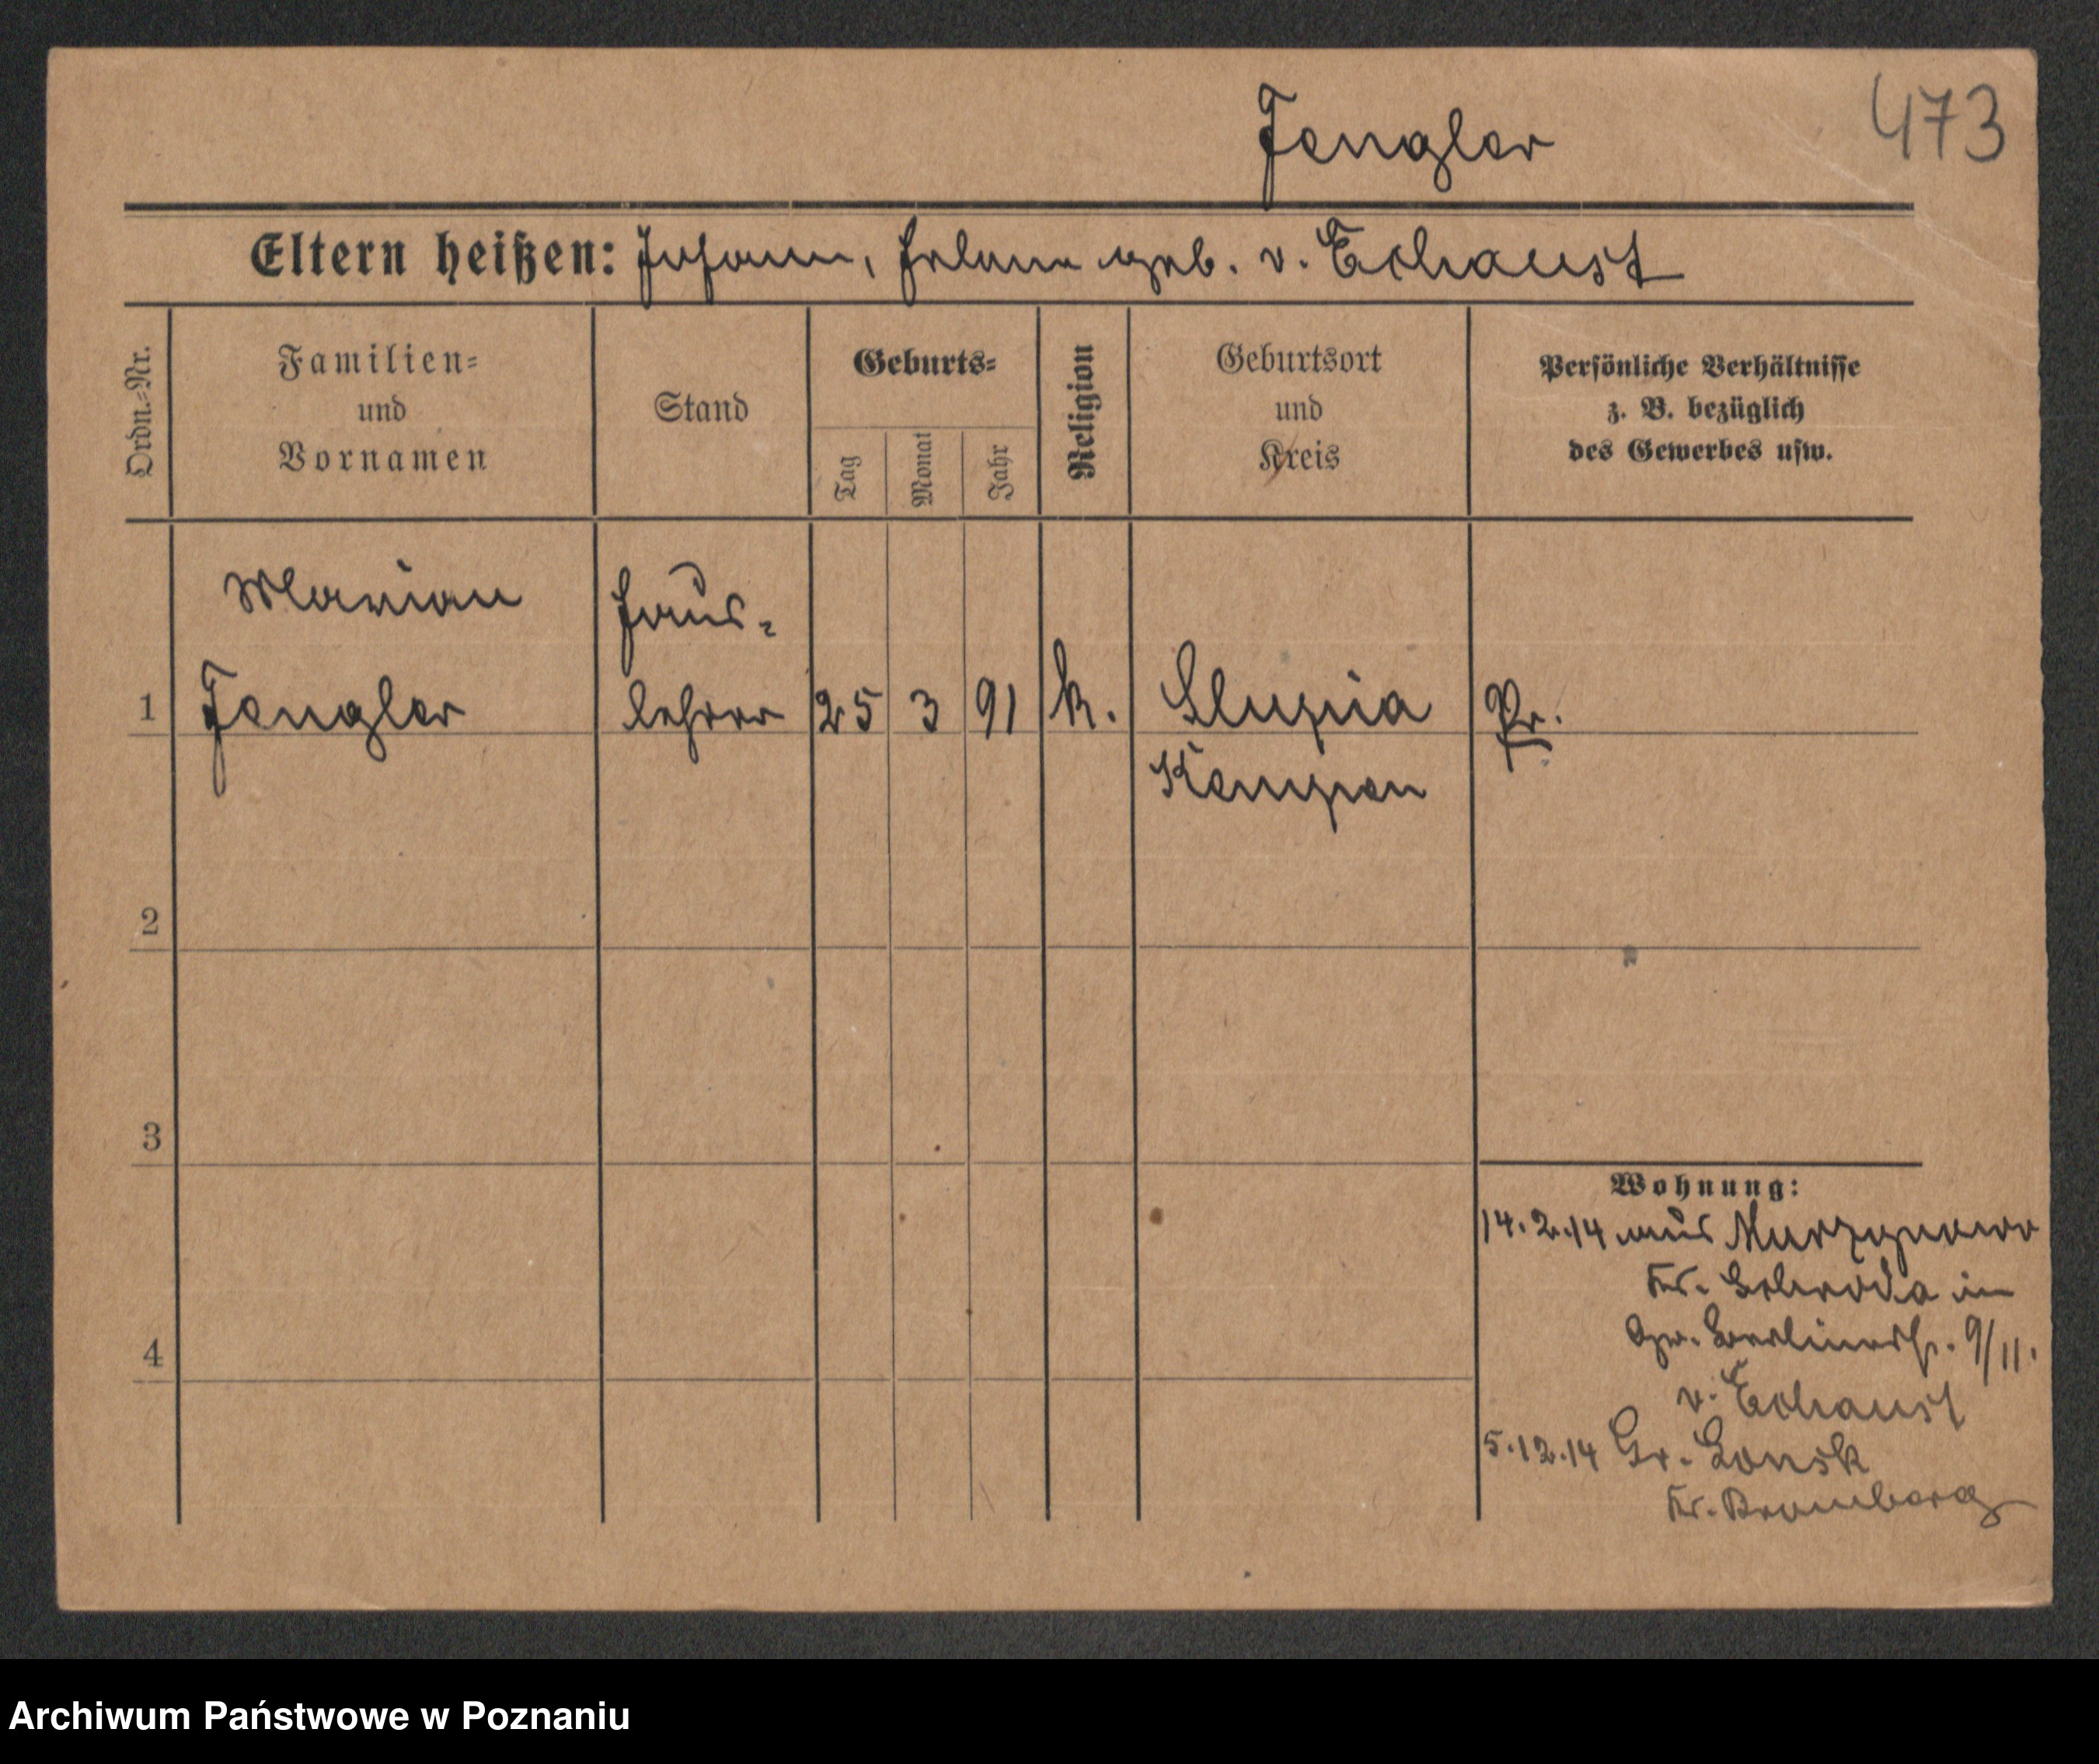 Fengler
473
Eltern heißen: Johann, Helene geb. v. Echaust
Ordn.-Nr.
Familien-
und
Vornamen
Stand
Geburts-
Tag
Monat
Jahr
Religion
Geburtsort
und
Kreis
Persönliche Verhältnisse
z. B. bezüglich
des Gewerbes usw.
Marian
Haus-
1 Fengler lehrer 25 3 91 k. Slupia Pr.
Kempen
2
3
4
Wohnung:
14.2.14 aus Murzynowo
Kr. Schroda in
Berlinerst. 9/11.
v. Echaust
5.12.14 Gr. Lonsk
Kr. Bromberg
Archiwum Państwowe w Poznaniu